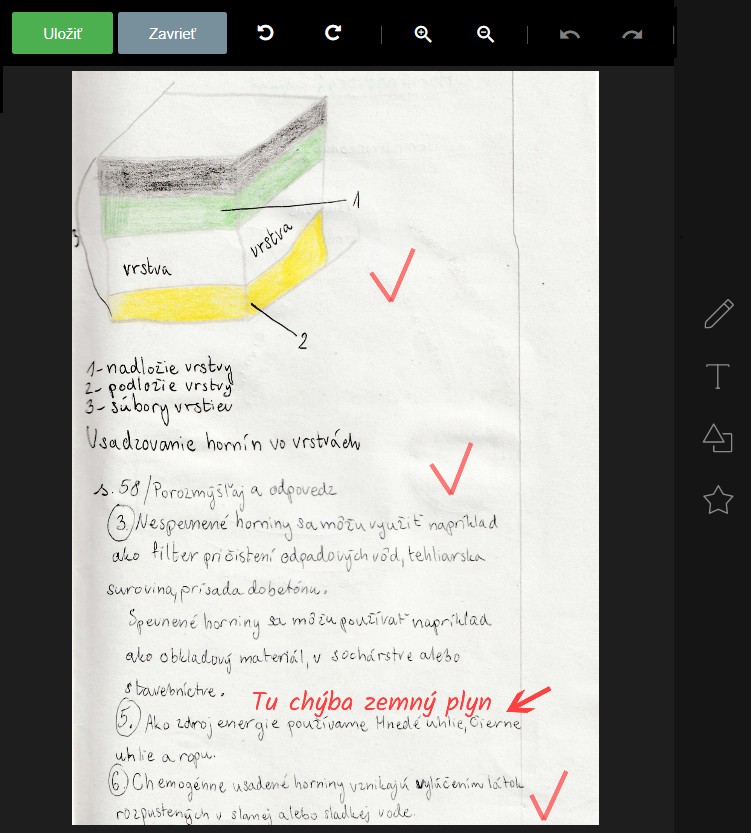 Uložiť
Zavrieť
1
vrstva
vrstva
3
2
1- nadložie vrstvy
2- podložie vrstvy
3- súbory vrstiev
Usadzovanie hornín vo vrstvách
s. 58/Porozmýšľaj a odpovedz
3. Nespevnené horniny sa môžu využiť napríklad
ako filter pri čistení odpadových vôd, tehliarska
surovina, prísada do betónu.
Spevnené horniny sa môžu používať napríklad
ako obkladový materiál, v sochárstve alebo
stavebníctve.
Tu chýba zemný plyn
5. Ako zdroj energie používame Hnedé uhlie, Čierne
uhlie a ropu.
6. Chemogénne usadené horniny vznikajú vylúčením látok
rozpustených v slanej alebo sladkej vode.
T